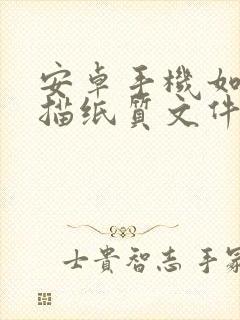 安卓手機如
描纸質文件
士貴智志手冢